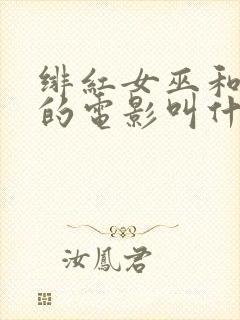 绯紅女巫和
的電影叫什
汝鳳君